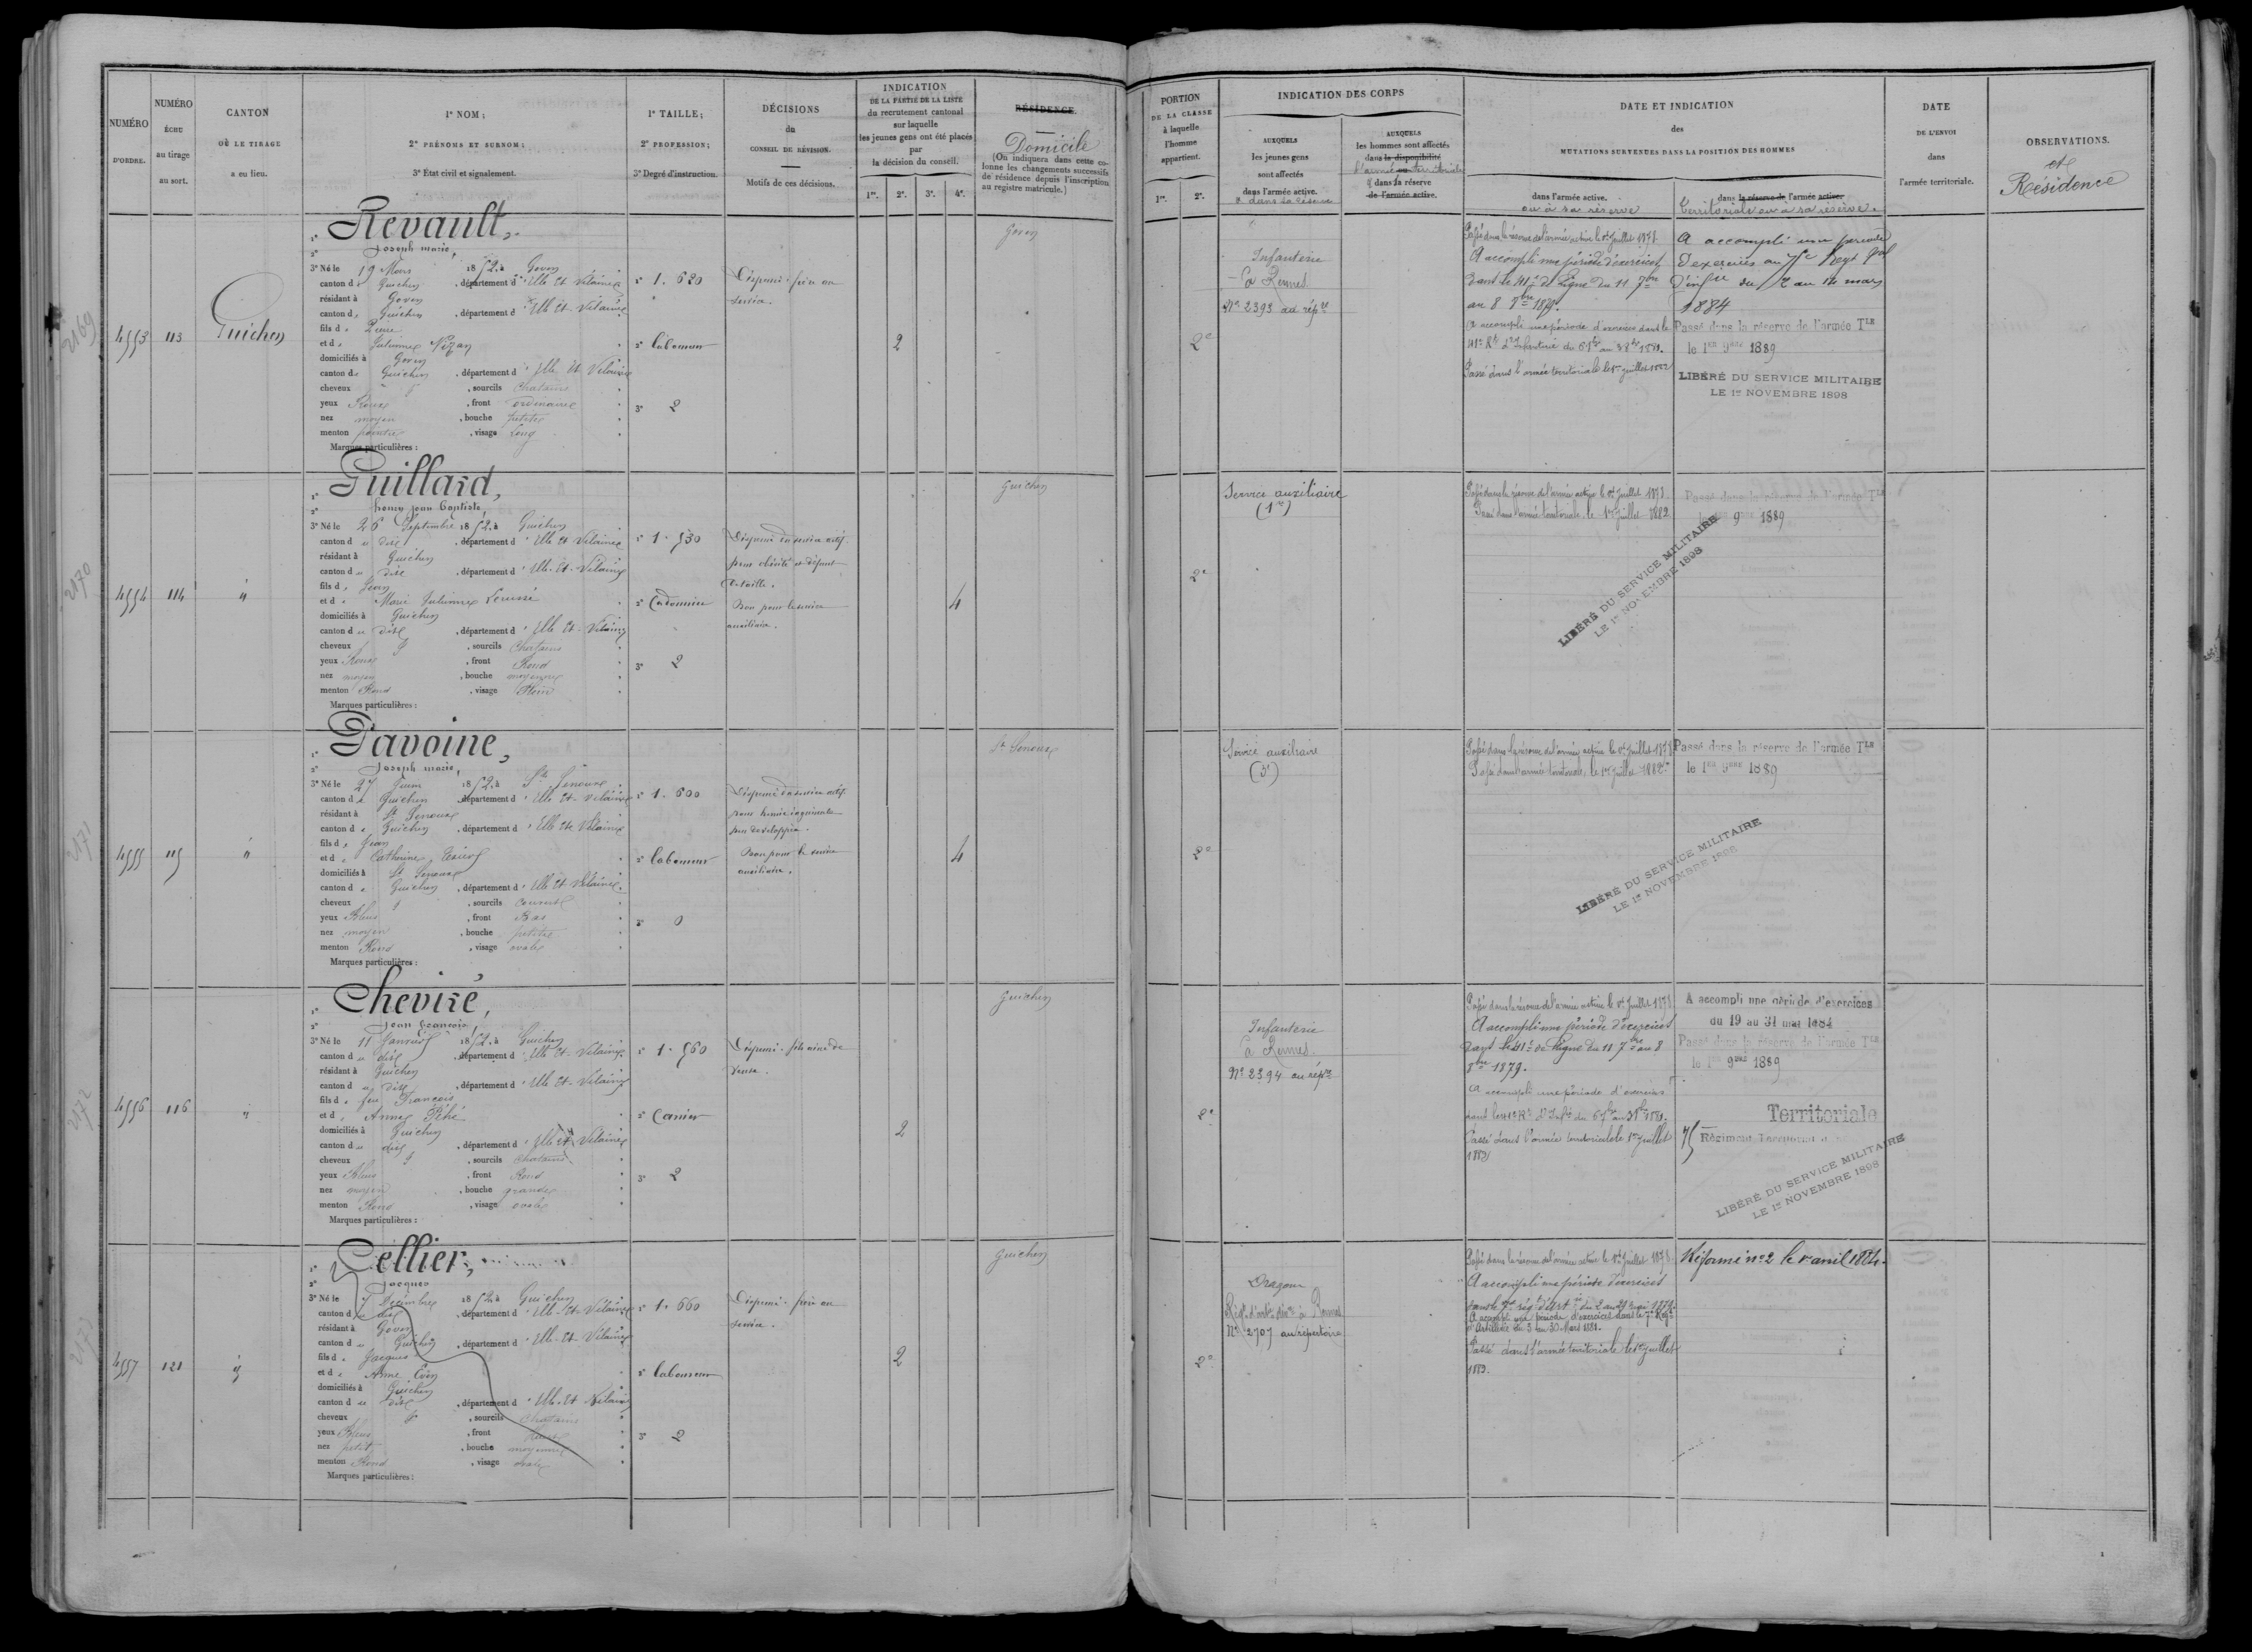 NUMÉRO
D'ORDRE.
NUMÉRO
ÉCHU
au tirage
au sort.
CANTON
OÙ LE TIRAGE
a eu lieu.
1° NOM;
2° PRÉNOMS ET SURNOM;
3° État civil et signalement.
1° TAILLE;
2° PROFESSION;
3° Degré d'instruction.
DÉCISIONS
du
CONSEIL DE RÉVISION.
Motifs de ces décisions.
INDICATION
DE LA PARTIE DE LA LISTE
du recrutement cantonal
sur laquelle
les jeunes gens ont été placés
par
la décision du conseil.
1re. 2e. 3e. 4e.
RÉSIDENCE.
Domicile
(On indiquera dans cette co-
lonne les changements successifs
de résidence depuis l'inscription
au registre matricule.)
4553
113
Guichen
1° Revault,
2° Joseph marie,
3° Né le 19 Mars 1852, à Goven
canton de Guichen, département d'Ille Et Vilaine
résidant à Goven
canton de Guichen, département d'Ille Et Vilaine
fils de Pierre
et de Julienne Nizan
domiciliés à Goven
canton de Guichen, département d'Ille Et Vilaine
cheveux, sourcils Chatains
yeux Roux, front ordinaire
nez moyen, bouche petite
menton pointu, visage Long
Marques particulières :
1° 1.620
2° laboureur
3° 2
Dispensé. frère au
service.
2
Goven
4554
114
"
1° Guillard,
2° henry jean baptiste,
3° Né le 26 Septembre 1852, à Guichen
canton du dit, département d'Ille Et Vilaine
résidant à Guichen
canton du dit, département d'Ille-Et-Vilaine
fils de Jean
et de Marie Julienne
domiciliés à Guichen
canton du dit, département d'Ille Et-Vilaine
cheveux, sourcils Chatains
yeux Roux, front Rond
nez moyen, bouche moyenne
menton Rond, visage Plein
Marques particulières :
1° 1.530
2° Cordonnier
3° 2
Dispensé du service actif
pour obésité et défaut
de taille.
Bon pour le service
auxiliaire.
4
Guichen
4555
115
"
1° Davoine,
2° Joseph marie,
3° Né le 27 Juin 1852, à St Senoux
canton de Guichen, département d'Ille Et-Vilaine
résidant à St Senoux
canton de Guichen, département d'Ille Et Vilaine
fils de Jean
et de Catherine
domiciliés à St Senoux
canton de Guichen, département d'Ille Et Vilaine
cheveux, sourcils
yeux Bleus, front Bas
nez moyen, bouche petite
menton Rond, visage ovale
Marques particulières :
1° 1.600
2° laboureur
3° 0
Dispensé du service actif
pour hernie inguinale
peu développée.
Bon pour le service
auxiliaire.
4
St Senoux
4556
116
"
1° Cheviré,
2° Jean françois,
3° Né le 11 Janvier 1852, à Guichen
canton du dit, département d'Ille Et-Vilaine
résidant à Guichen
canton du dit, département d'Ille Et-Vilaine
fils de feu François
et d'Anne Péhé
domiciliés à Guichen
canton du dit, département d'Ille Et Vilaine
cheveux, sourcils Chatains
yeux Bleus, front Rond
nez moyen, bouche grande
menton Rond, visage ovale
Marques particulières :
1° 1.560
2° Carrier
3° 2
Dispensé. fils aîné de
veuve.
2
Guichen
4557
121
"
1° Cellier,
2° Jacques
3° Né le 7 Décembre 1852, à Guichen
canton du dit, département d'Ille-Et-Vilaine
résidant à Goven
canton de Guichen, département d'Ille-Et-Vilaine
fils de Jacques
et d'Anne
domiciliés à Guichen
canton du dit, département d'Ille-Et Vilaine
cheveux, sourcils Chatains
yeux Bleus, front
nez petit, bouche moyenne
menton Rond, visage ovale
Marques particulières :
1° 1.660
2° laboureur
3° 2
Dispensé. frère au
service.
2
Guichen
2169
2170
2171
2172
2173
PORTION
DE LA CLASSE
à laquelle
l'homme
appartient.
1re. 2e.
INDICATION DES CORPS
AUXQUELS
les jeunes gens
sont affectés
dans l'armée active.
& dans sa réserve
AUXQUELS
les hommes sont affectés
dans la disponibilité
l'armée territoriale
& dans sa réserve
de l'armée active.
DATE ET INDICATION
des
MUTATIONS SURVENUES DANS LA POSITION DES HOMMES
dans l'armée active.
ou à sa réserve
dans la réserve de l'armée active.
territoriale ou à sa réserve.
DATE
DE L'ENVOI
dans
l'armée territoriale.
OBSERVATIONS.
et
Résidence
2e
Infanterie
à Rennes
No 2393 au répre
Passé dans la réserve de l'armée active le 1er Juillet 1878.
A accompli une période d'exercices
dans le 41e de Ligne du 11 7bre
au 8 8bre 1879.
A accompli une période d'exercices dans le
41e Rt d'Infanterie du
Passé dans l'armée territoriale le 1er juillet 1882
A accompli une période
d'exercices au 75e Regt
d'infie du 2 au 14 mars
1884
Passé dans la réserve de l'armée Tle
le 1er 9bre 1889
LIBÉRÉ DU SERVICE MILITAIRE
LE 1er NOVEMBRE 1898
2e
Service auxiliaire
(1re)
Passé dans la réserve de l'armée active le 1er Juillet 1878.
Passé dans l'armée territoriale le 1er Juillet 1882
Passé dans la réserve de l'armée Tle
le 1er 9bre 1889
LIBÉRÉ DU SERVICE MILITAIRE
LE 1er NOVEMBRE 1898
2e
Service auxiliaire
(3e)
Passé dans la réserve de l'armée active le 1er Juillet 1878
Passé dans l'armée territoriale, le 1er Juillet 1882
Passé dans la réserve de l'armée Tle
le 1er 9bre 1889
LIBÉRÉ DU SERVICE MILITAIRE
LE 1er NOVEMBRE 1898
2e
Infanterie
à Rennes
No 2394 au répre
Passé dans la réserve de l'armée active le 1er Juillet 1878
A accompli une période d'exercices
dans le 41e de Ligne du 11 7bre au 8
8bre 1879.
A accompli une période d'exercices
dans le 41e Rt d'Infie du
Passé dans l'armée territoriale le 1er Juillet
1882
A accompli une période d'exercices
du 19 au 31 mai 1884
Passé dans la réserve de l'armée Tle
le 1er 9bre 1889
Territoriale
75 Régiment Territorial
LIBÉRÉ DU SERVICE MILITAIRE
LE 1er NOVEMBRE 1898
2e
Dragons
à Rennes
No 2707 au répertoire
Passé dans la réserve de l'armée active le 1er Juillet 1878
A accompli une période d'exercices
dans le 7e rég d'art du 2 au 29 mai 1879.
A accompli une période d'exercices dans le 7e Regt
d'Artillerie du 3 au 30 Mars 1881.
Passé dans l'armée territoriale le 1er juillet
1882.
Réformé no 2 le 1er avril 1884.